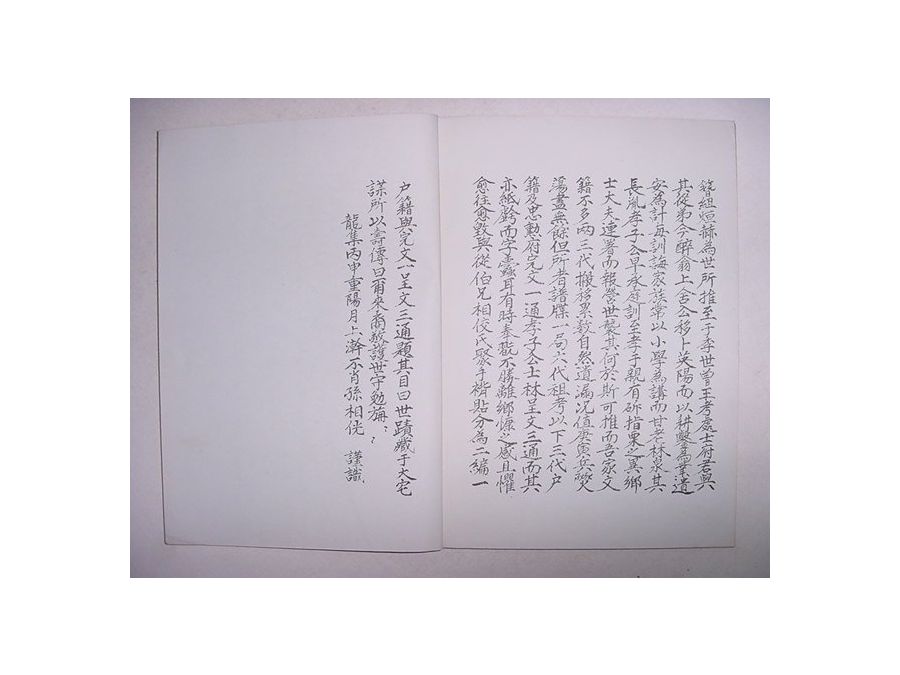 簪組烜赫為世所推至于季世曾王考處士府君與
其從弟今醉翁上舍公移卜英陽而以耕鑿為業遺
安為計每訓誨家族常以小學為講而甘老林泉其
長胤孝子公早承庭訓至孝于親有斫指之異鄉
士大夫連署而報營世襲其何於斯可推而吾家文
籍不多兩三代搬移累數自然遺漏况值庚寅兵燹
蕩盡無餘但所者譜牒一局六代祖考以下三代户
籍及忠勳府完文一通孝子公士林呈文三通而其
亦紙蠧而字蠹耳有時奉翫不勝離鄉懷之感且懼
愈往愈毀與從伯兄相佼氏聚手褙貼分為二編一
户籍與完文一呈文三通題其目曰世蹟藏于大宅
謀所以壽傳曰爾來裔敬護世守勉旃
龍集丙申重陽月上澣不肖孫相侊 謹識